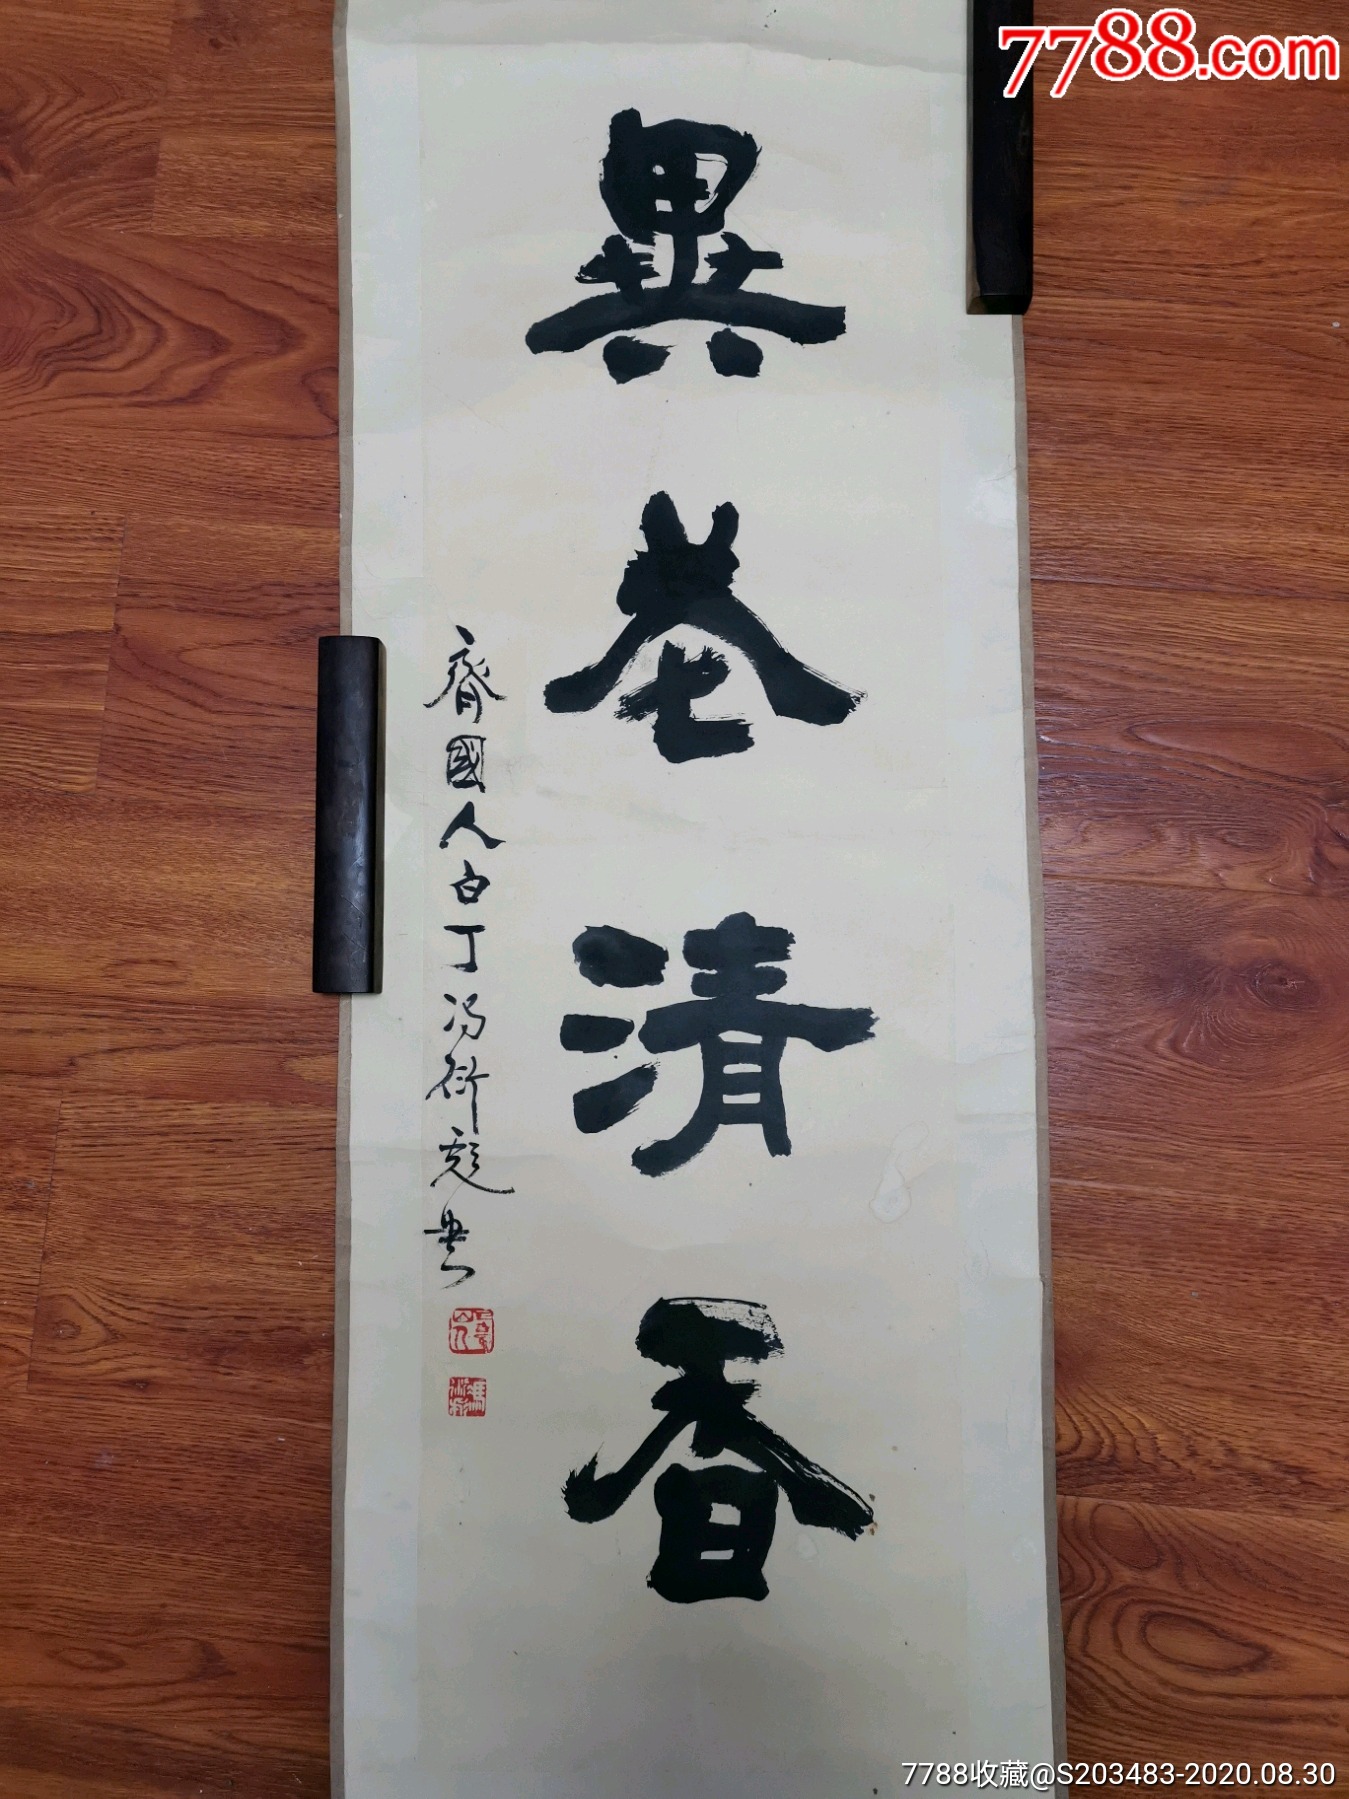 7788.com
異花清香
齊國人白丁馮衍彪書
7788收藏@S203483-2020.08.30